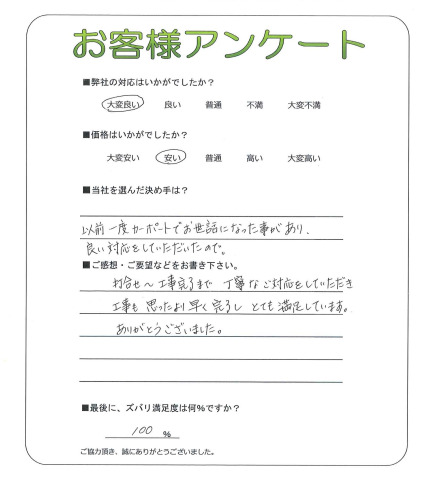 お客様アンケート
■弊社の対応はいかがでしたか?
大変良い 良い 普通 不満 大変不満
■価格はいかがでしたか?
大変安い 安い 普通 高い 大変高い
■当社を選んだ決め手は?
以前一度カーポートでお世話になった事があり、
良い対応をしていただいたので。
■ご感想・ご要望などをお書き下さい。
打合せ〜工事完了まで 丁寧なご対応をしていただき
工事も思ったより早く完了し とても満足しています。
ありがとうございました。
■最後に、ズバリ満足度は何%ですか?
100 %
ご協力頂き、誠にありがとうございました。